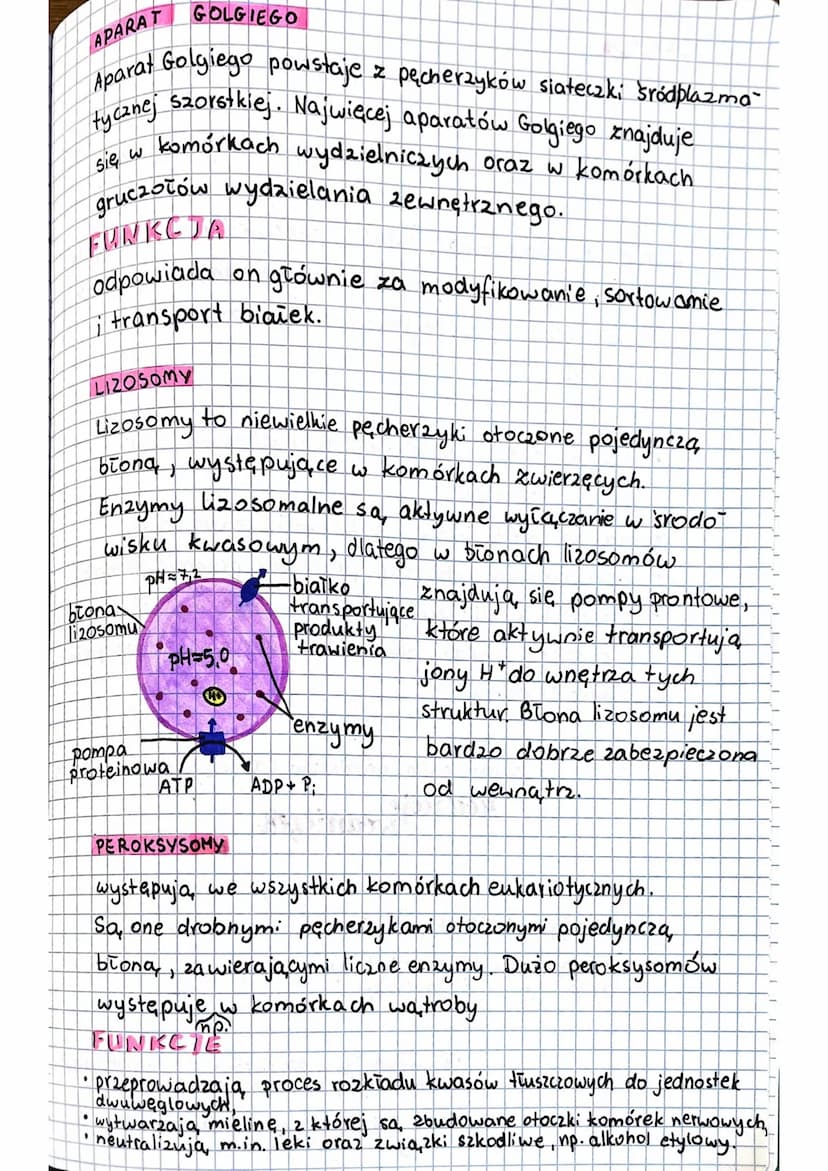 APARAT GOLGIEGO
Aparat Golgiego powstaje z pęcherzyków siateczki śródplazma-
tycznej szorstkiej. Najwięcej aparatów Golgiego znajduje
się w komórkach wydzielniczych oraz w komórkach
gruczołów wydzielania zewnętrznego.
FUNKCJA
odpowiada on głównie za modyfikowanie, sortowanie
i transport białek.
LIZOSOMY
Lizosomy to niewielkie pęcherzyki otoczone pojedynczą
błoną, występujące w komórkach zwierzęcych.
Enzymy lizosomalne są aktywne wyłączanie w środo-
wisku kwasowym, dlatego w błonach lizosomów
znajdują się pompy prontowe,
które aktywnie transportują
jony H⁺ do wnętrza tych
struktur. Błona lizosomu jest
bardzo dobrze zabezpieczona
od wewnątrz.
pH≈7,2
błona
lizosomu
białko
transportujące
produkty
trawienia
pH≈5,0
H+
enzymy
pompa
proteinowa
ATP
ADP + Pi
PEROKSYSOMY
występują we wszystkich komórkach eukariotycznych.
Są one drobnymi pęcherzykami otoczonymi pojedynczą
błoną, zawierającymi liczne enzymy. Dużo peroksysomów
występuje np. w komórkach wątroby
FUNKCJE
• przeprowadzają proces rozkładu kwasów tłuszczowych do jednostek
dwuwęglowych,
• wytwarzają mielinę, z której są zbudowane otoczki komórek nerwowych,
• neutralizują m.in. leki oraz związki szkodliwe, np. alkohol etylowy.